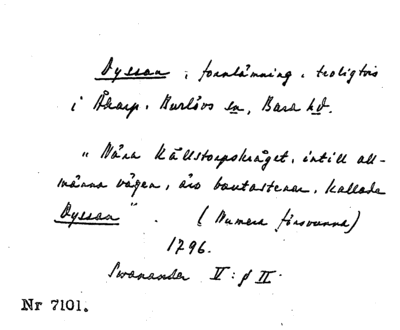 Dyssan, fornlämning, troligtvis
i Åkarp, Burlövs sn, Bara hd.
"Nära Källstorpskroget, intill all-
männa vägen, äro bautastenar, kallade
Dyssan". (Numera försvunna)
1796.
Svanander V: II.
Nr 7101.